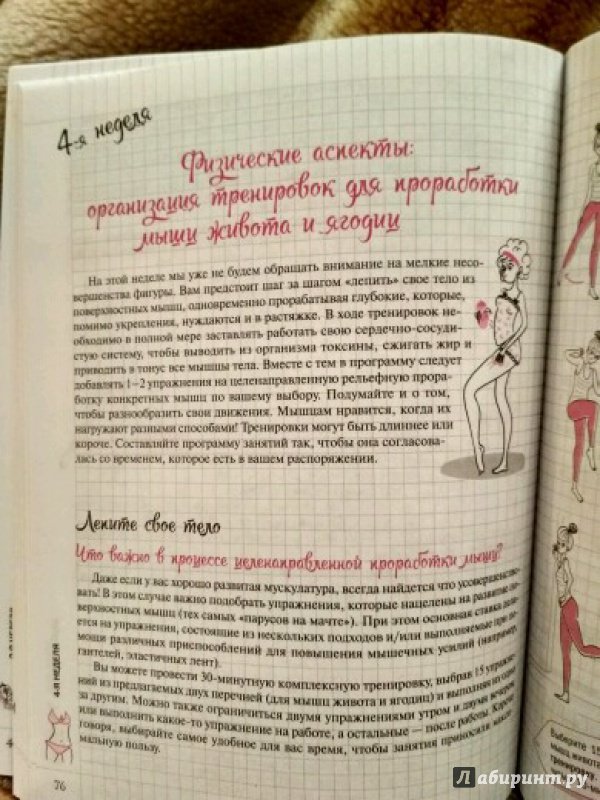 4-я неделя
Физические аспекты:
организация тренировок для проработки
мышц живота и ягодиц
На этой неделе мы уже не будем обращать внимание на мелкие несо-
вершенства фигуры. Вам предстоит шаг за шагом «лепить» свое тело из
поверхностных мышц, одновременно прорабатывая глубокие, которые,
помимо укрепления, нуждаются и в растяжке. В ходе тренировок не-
обходимо в полной мере заставлять работать свою сердечно-сосуди-
стую систему, чтобы выводить из организма токсины, сжигать жир и
приводить в тонус все мышцы тела. Вместе с тем в программу следует
добавлять 1–2 упражнения на целенаправленную рельефную прора-
ботку конкретных мышц по вашему выбору. Подумайте и о том,
чтобы разнообразить свои движения. Мышцам нравится, когда их
нагружают разными способами! Тренировки могут быть длиннее или
короче. Составляйте программу занятий так, чтобы она согласова-
лась со временем, которое есть в вашем распоряжении.
Лепите свое тело
Что важно в процессе целенаправленной проработки мышц?
Даже если у вас хорошо развитая мускулатура, всегда найдется что усовершенство-
вать! В этом случае важно подобрать упражнения, которые нацелены на развитие по-
верхностных мышц (тех самых «парусов на мачте»). При этом основная ставка дела-
ется на упражнения, состоящие из нескольких подходов и/или выполняемые при по-
мощи различных приспособлений для повышения мышечных усилий (например,
гантелей, эластичных лент).
Вы можете провести 30-минутную комплексную тренировку, выбрав 15 упражне-
ний из предлагаемых двух перечней (для мышц живота и ягодиц) и выполняя их одно
за другим. Можно также ограничиться двумя упражнениями утром и двумя вечером
или выполнить какое-то упражнение на работе, а остальные — после работы. Короче
говоря, выбирайте самое удобное для вас время, чтобы занятия приносили макси-
мальную пользу.
4-Я НЕДЕЛЯ
76
Выберите 15
мышц живота
тренировку
Лабиринт.ру